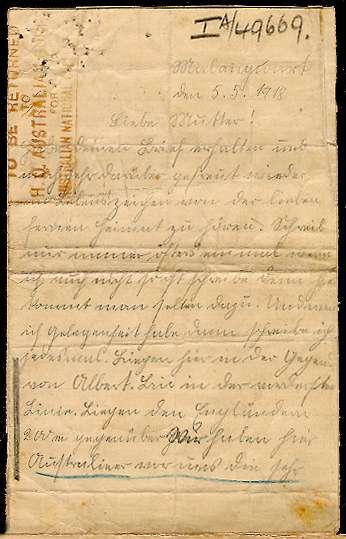 IA/49669.
TO BE RETURNED
TO
H.Q. AUSTRALIAN
FOR
AUSTRALIAN NATIONAL
den 5.5.1918
Liebe Mutter!
deinen Brief erhalten und
mich sehr darüber gefreut wieder
ein Lebenszeichen von der lieben
fernen Heimat zu hören. Schreib
mir immer öfters einmal wenn
ich auch nicht so oft schreibe denn
kommt man selten dazu. Und wenn
ich Gelegenheit habe dann schreibe ich
jedesmal. Liegen hier in der Gegend
von Albert. Bin in der vordersten
Linie. Liegen den Engländern
200 m gegenüber. Wir haben hier
Australier vor uns die sehr